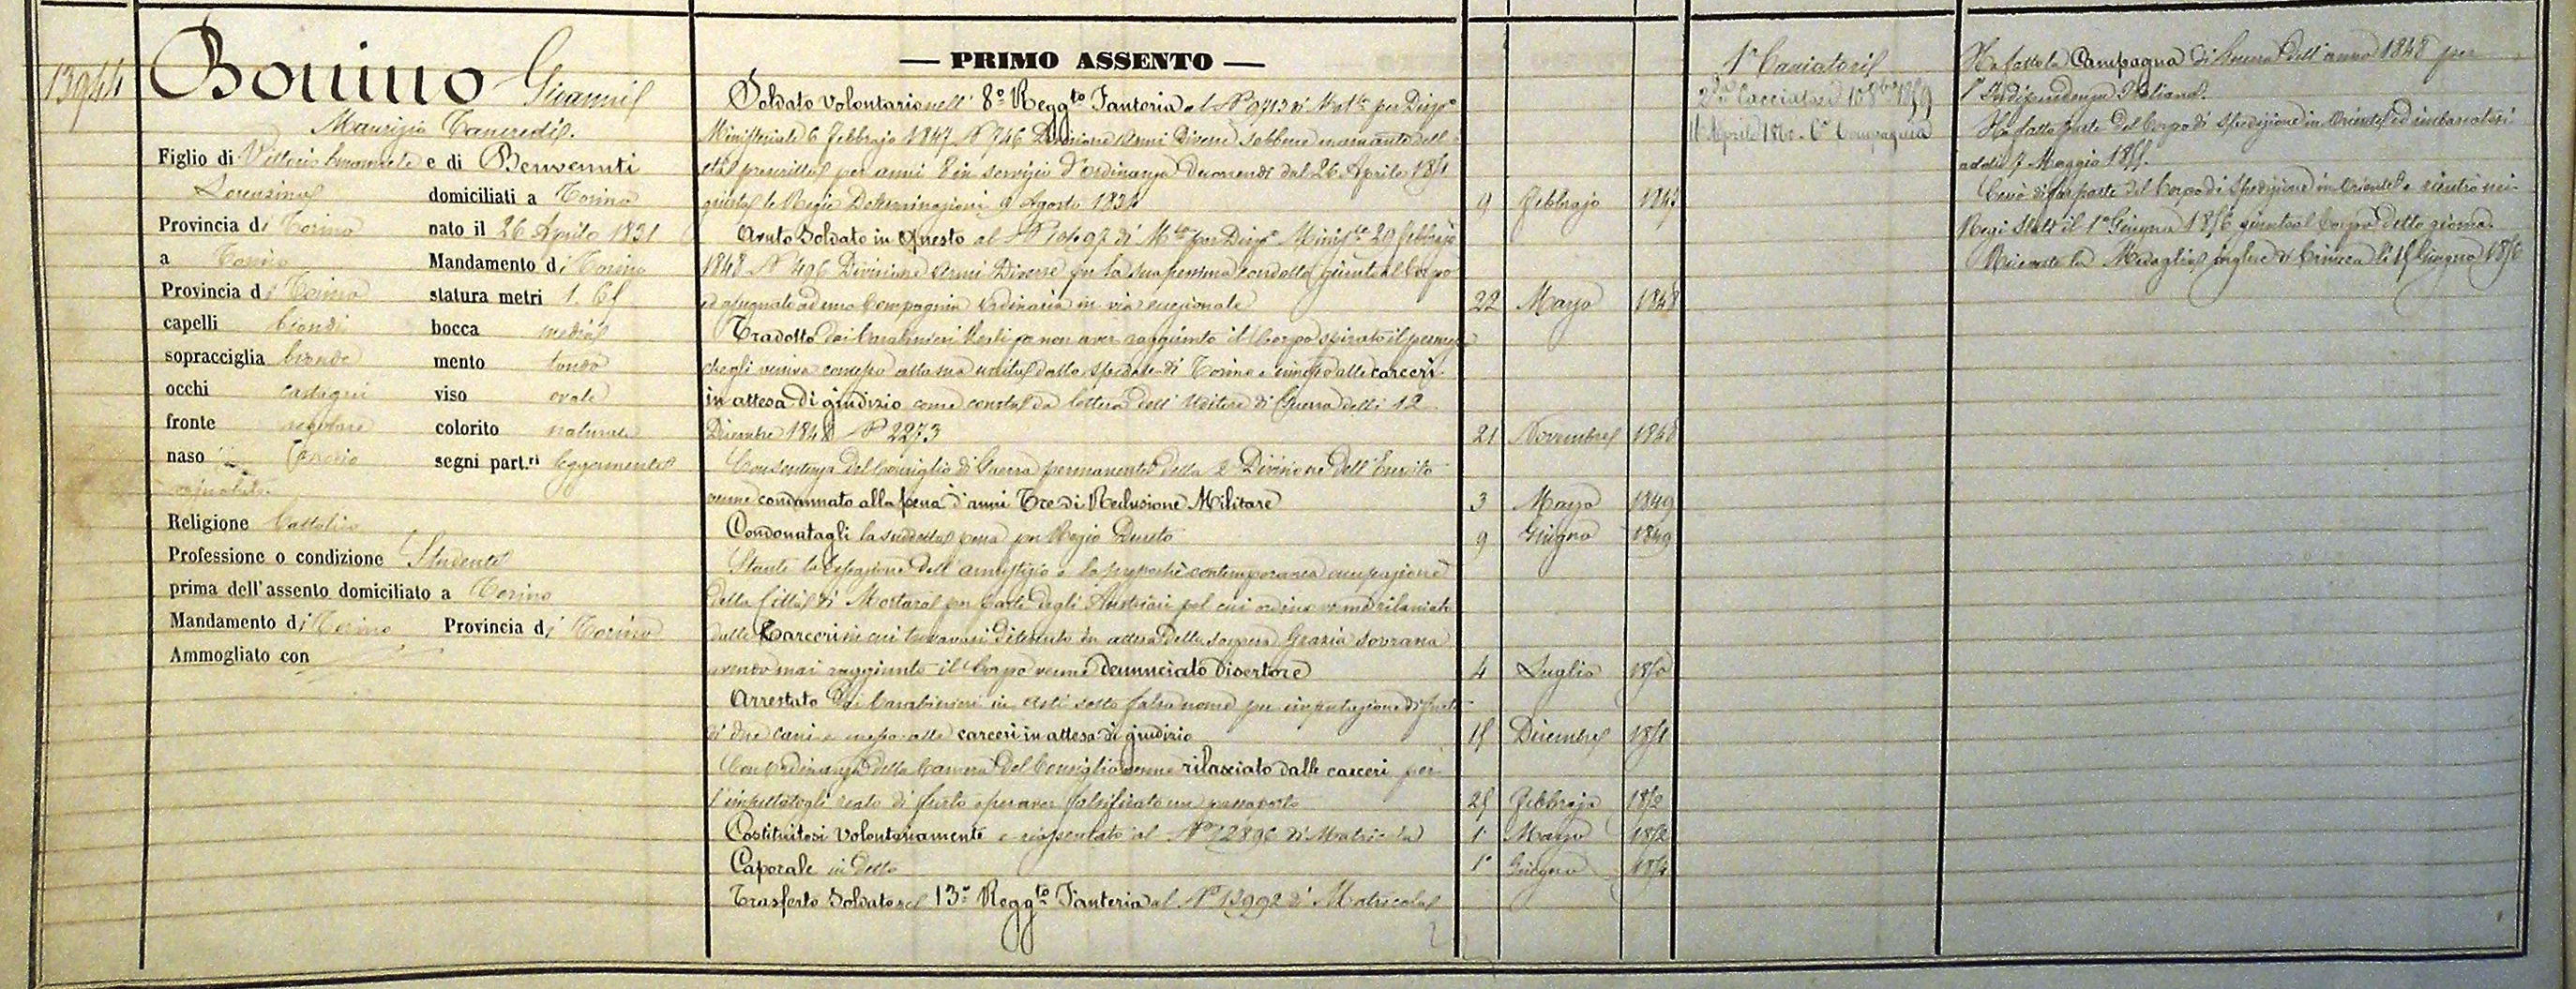 13944
Bonino Giovanni
Maurizio Tancredi.
Figlio di Vittorio Emanuele e di Benvenuti
Lorenzina domiciliati a Torino
Provincia di Torino nato il 26 Aprile 1831
a Torino Mandamento di Torino
Provincia di Torino statura metri 1. 65
capelli biondi bocca media
sopracciglia bionde mento tondo
occhi castagni viso ovale
fronte regolare colorito naturale
naso segni part.ri leggermente
Religione Cattolica
Professione o condizione Studente
prima dell'assento domiciliato a Torino
Mandamento di Torino Provincia di Torino
Ammogliato con
— PRIMO ASSENTO —
Soldato volontario nell' 8° Regg.to Fanteria al N° 9713 di Mat.la per Disp.o
Ministeriale 6 Febbrajo 1847 N° 746 Divisione Armi Diverse sebbene mancante dell'
età prescritta per anni 8 in servizio d'ordinanza decorrendi dal 26 Aprile 1851
giusta le Regie Determinazioni 9 Agosto 1834 9 Febbrajo 1847
Avuto Soldato in Questo al N° 10497 di M.la per Disp.o Minist.le 29 Febbrajo
1848 N° 496 Divisione Armi Diverse per la sua pessima condotta giunto al Corpo
ed assegnato ad una Compagnia Ordinaria in via eccezionale 22 Marzo 1848
Tradotto dai Carabinieri Reali per non aver raggiunto il Corpo spirato il permesso
che gli veniva concesso alla sua uscita dallo spedale di Torino e rimesso alle carceri
in attesa di giudizio come consta da lettera dell' Uditore di Guerra delli 12
Dicembre 1848 N° 2273 21 Novembre 1848
Con sentenza del Consiglio di Guerra permanente della 2a Divisione dell' Esercito
venne condannato alla pena d'anni Tre di Reclusione Militare 3 Marzo 1849
Condonatagli la suddetta pena per Regio Decreto 9 Giugno 1849
Stante la cessazione dell' armistizio e la contemporanea occupazione
della Città di Mortara per parte degli Austriaci pel cui ordine venne rilasciato
dalle Carceri in cui trovavasi ditenuto in attesa della Grazia sovrana
avendo mai raggiunto il Corpo venne denunciato disertore 4 Luglio 1850
Arrestato dai Carabinieri in Asti sotto falso nome per imputazione di furto
di due cani e messo alle carceri in attesa di giudizio 15 Dicembre 1851
Con Ordinanza della Camera del Consiglio venne rilasciato dalle carceri per
l'imputatogli reato di furto e per aver falsificato un passaporto 25 Febbrajo 1852
Costituitosi volontariamente e riassentato al N° 12896 di Matricola 1° Marzo 1852
Caporale in detto 1° Giugno 1854
Trasferto Soldato nel 13° Regg.to Fanteria al N° 13992 di Matricola
1° Cacciatori
2da Cacciatori 10 8bre 1859
11 Aprile 1860 - 6a Compagnia
Ha fatto la Campagna di Guerra dell' anno 1848 per
l' Indipendenza Italiana.
Ha fatto parte del Corpo di spedizione in Oriente ed imbarcatosi
addì 7 Maggio 1855.
Cessò di far parte del Corpo di Spedizione in Oriente e rientrò nei
Regi Stati il 1° Giugno 1856 giunto al Corpo detto giorno.
Ricevuto la Medaglia inglese di Crimea li 15 Giugno 1856